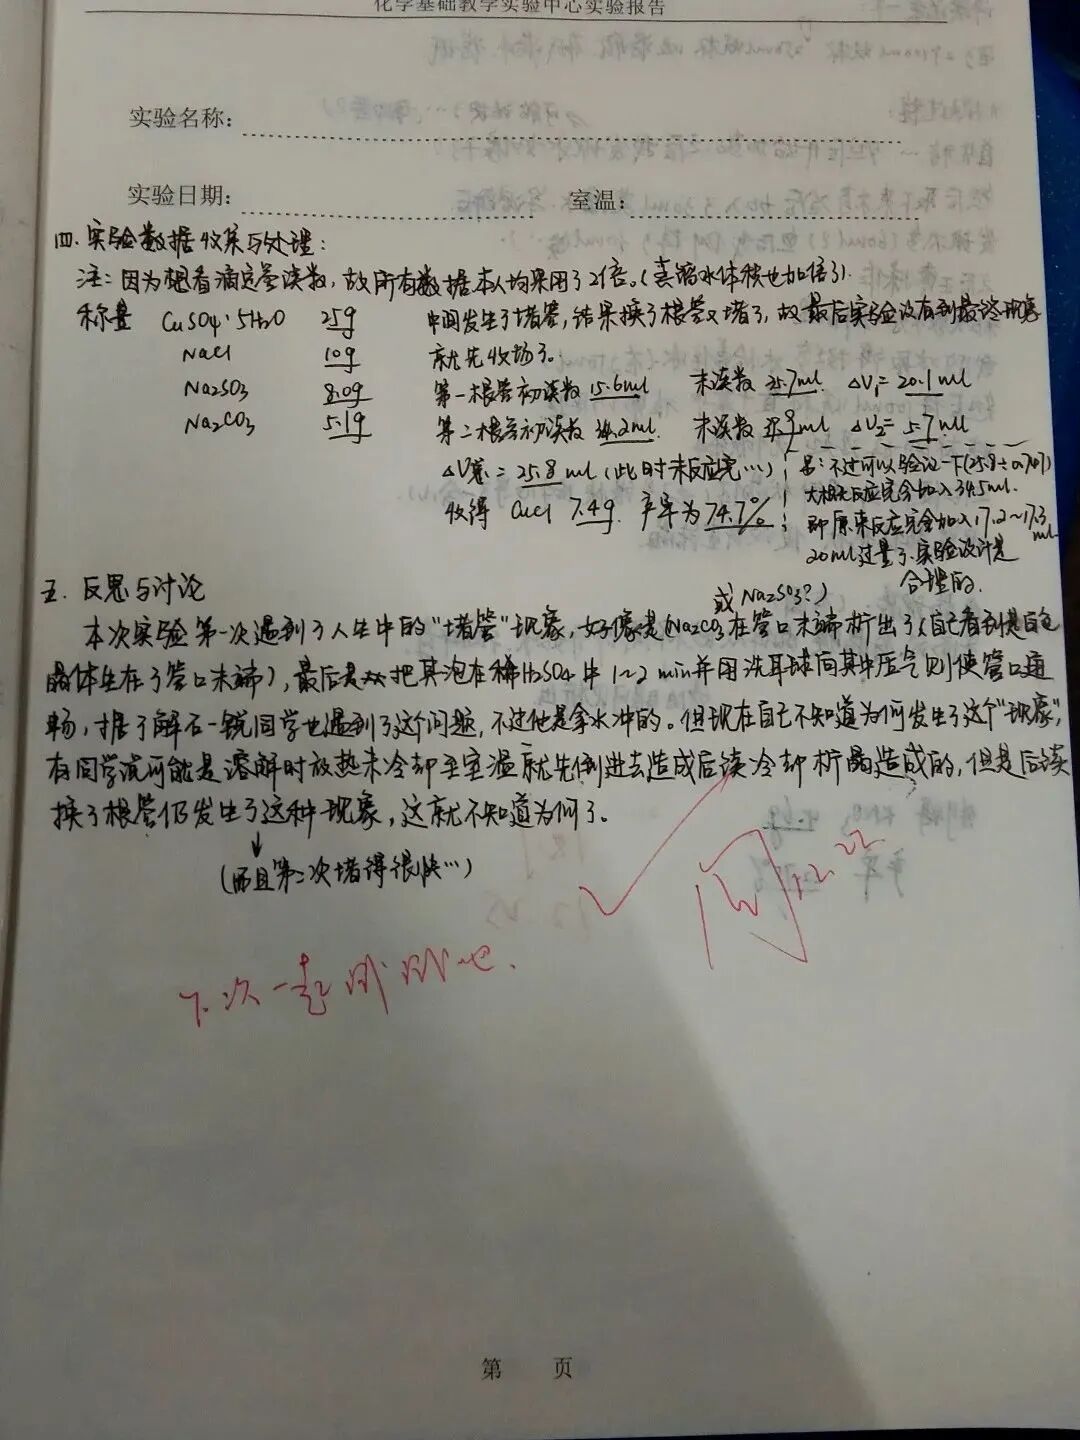 化学基础教学实验中心实验报告
实验名称:
实验日期: 室温:
四. 实验数据收集与处理:
注: 因为想看滴定管读数, 故所有数据本人均采用了2倍。(蒸馏水体积也加倍了).
称量 CuSO4·5H2O 25g 中间发生了堵管, 结果换了根管又堵了, 故最后实验没有到最终现象
NaCl 10g 就先收场了。
Na2SO3 8.0g 第一根管初读数 15.6ml 末读数 35.7ml ΔV1= 20.1ml
Na2CO3 5.1g 第二根管初读数 34.2ml 末读数 ml ΔV2= 5.7ml
ΔV总 = 25.8ml (此时未反应完…) 不过可以验证一下(25.8÷0.747)
大概反应完会加入34.5ml.
收得 CuCl 7.4g. 产率为74.7% 即原来反应完会加入17.2~17.3ml
20ml过量了. 实验设计是
合理的.
五. 反思与讨论
或Na2SO3?)
本次实验第一次遇到了人生中的"堵管"现象, 好像是(Na2CO3在管口末端析出了(自己看到是白色
晶体生在了管口末端), 最后是把其泡在稀H2SO4中1~2min并用洗耳球向其中压气则使管口通
畅, 据了解石一锐同学也遇到了这个问题, 不过他是拿水冲的。但现在自己不知道为何发生了这个"现象",
有同学说可能是溶解时放热未冷却至室温就先倒进去造成后续冷却析晶造成的, 但是后续
换了根管仍发生了这种现象, 这就不知道为何了。
(而且第二次堵得很快…)
下次一起